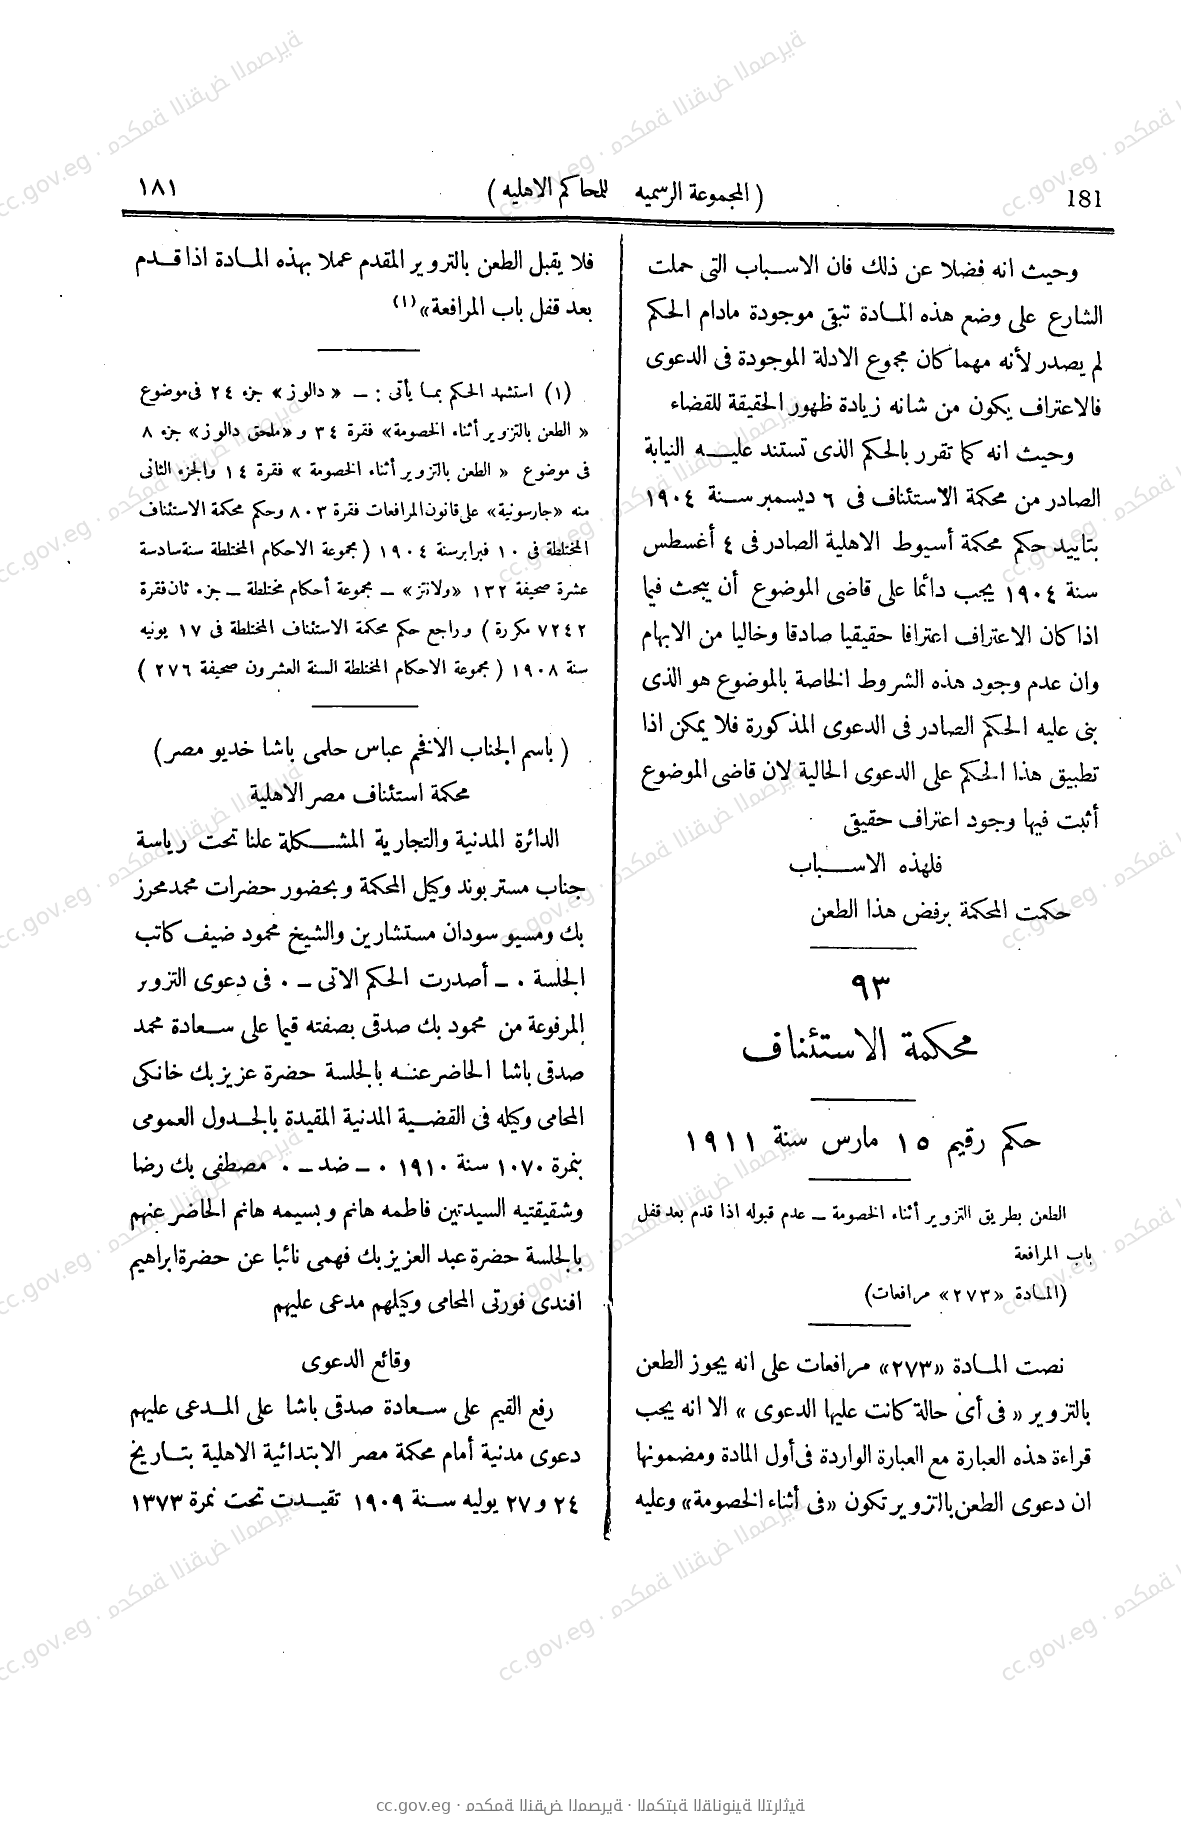 181
( المجموعة الرسميه للمحاكم الاهليه )
١٨١
وحيث انه فضلا عن ذلك فان الاسباب التى حملت
الشارع على وضع هذه المادة تبقى موجودة مادام الحكم
لم يصدر لأنه مهما كان مجموع الادلة الموجودة فى الدعوى
فالاعتراف يكون من شانه زيادة ظهور الحقيقة للقضاء
وحيث انه كما تقرر بالحكم الذى تستند عليه النيابة
الصادر من محكمة الاستئناف فى ٦ ديسمبر سنة ١٩٠٤
بتاييد حكم محكمة أسيوط الاهلية الصادر فى ٤ أغسطس
سنة ١٩٠٤ يجب دائما على قاضى الموضوع أن يبحث فيما
اذا كان الاعتراف اعترافا حقيقيا صادقا وخاليا من الابهام
وان عدم وجود هذه الشروط الخاصة بالموضوع هو الذى
بنى عليه الحكم الصادر فى الدعوى المذكورة فلا يمكن اذا
تطبيق هذا الحكم على الدعوى الحالية لان قاضى الموضوع
أثبت فيها وجود اعتراف حقيقى
فلهذه الاسباب
حكمت المحكمة برفض هذا الطعن
٩٣
محكمة الاستئناف
حكم رقيم ١٥ مارس سنة ١٩١١
الطعن بطريق التزوير أثناء الخصومة ــ عدم قبوله اذا قدم بعد قفل
باب المرافعة
(المادة «٢٧٣» مرافعات)
نصت المادة «٢٧٣» مرافعات على انه يجوز الطعن
بالتزوير « فى أى حالة كانت عليها الدعوى » الا انه يجب
قراءة هذه العبارة مع العبارة الواردة فى أول المادة ومضمونها
ان دعوى الطعن بالتزوير تكون «فى أثناء الخصومة» وعليه
فلا يقبل الطعن بالتزوير المقدم عملا بهذه المادة اذا قدم
بعد قفل باب المرافعة» (١)
(١) استشهد الحكم بما يأتى : ــ « دالوز » جزء ٢٤ فى موضوع
« الطعن بالتزوير أثناء الخصومة» فقرة ٣٤ و «ملحق دالوز» جزء ٨
فى موضوع « الطعن بالتزوير أثناء الخصومة » فقرة ١٤ والجزء الثانى
منه «جارسونية» على قانون المرافعات فقرة ٨٠٣ وحكم محكمة الاستئناف
المختلطة فى ١٠ فبراير سنة ١٩٠٤ (مجموعة الاحكام المختلطة سنة سادسة
عشرة صحيفة ١٣٢ «ولانتز» ــ مجموعة أحكام مختلطة ــ جزء ثان فقرة
٧٢٤٢ مكررة ) وراجع حكم محكمة الاستئناف المختلطة فى ١٧ يونيه
سنة ١٩٠٨ ( مجموعة الاحكام المختلطة السنة العشرون صحيفة ٢٧٦ )
( باسم الجناب الافخم عباس حلمى باشا خديو مصر )
محكمة استئناف مصر الاهلية
الدائرة المدنية والتجارية المشكلة علنا تحت رياسة
جناب مستر بوند وكيل المحكمة وبحضور حضرات محمد محرز
بك ومسيو سودان مستشارين والشيخ محمود ضيف كاتب
الجلسة ٠ ــ أصدرت الحكم الاتى ــ ٠ فى دعوى التزوير
المرفوعة من محمود بك صدقى بصفته قيما على سعادة محمد
صدقى باشا الحاضر عنه بالجلسة حضرة عزيز بك خانكى
المحامى وكيله فى القضية المدنية المقيدة بالجدول العمومى
بنمرة ١٠٧٠ سنة ١٩١٠ ٠ ــ ضد ــ ٠ مصطفى بك رضا
وشقيقتيه السيدتين فاطمه هانم وبسيمه هانم الحاضر عنهم
بالجلسة حضرة عبد العزيز بك فهمى نائبا عن حضرة ابراهيم
افندى فورتى المحامى وكيلهم مدعى عليهم
وقائع الدعوى
رفع القيم على سعادة صدقى باشا على المدعى عليهم
دعوى مدنية أمام محكمة مصر الابتدائية الاهلية بتاريخ
٢٤ و ٢٧ يوليه سنة ١٩٠٩ تقيدت تحت نمرة ١٣٧٣
cc.gov.eg · محكمة النقض المصرية · المكتبة القانونية التراثية